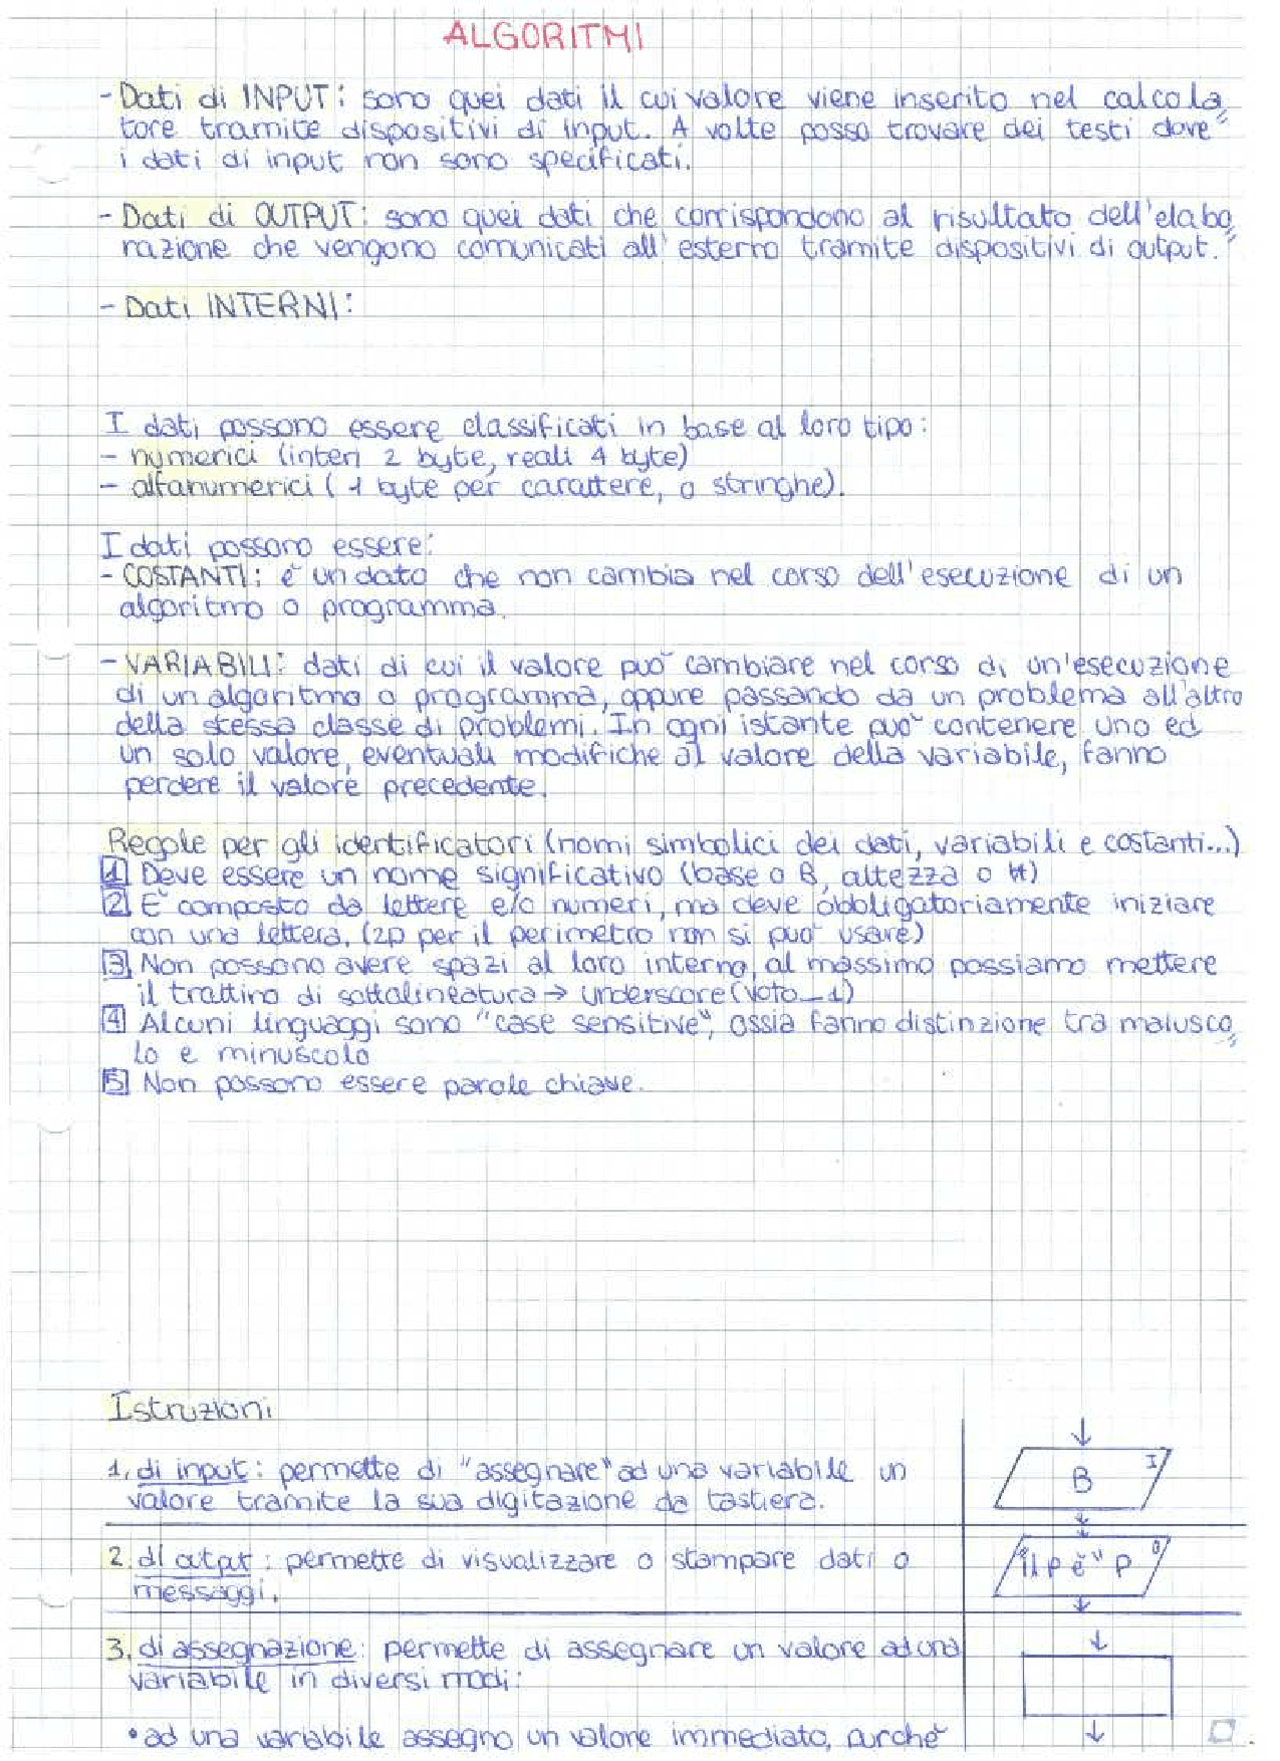 ALGORITMI
- Dati di INPUT: sono quei dati il cui valore viene inserito nel calcola
tore tramite dispositivi di input. A volte posso trovare dei testi dove
i dati di input non sono specificati.
- Dati di OUTPUT: sono quei dati che corrispondono al risultato dell'elabo
razione che vengono comunicati all'esterno tramite dispositivi di output.
- Dati INTERNI:
I dati possono essere classificati in base al loro tipo:
- numerici (interi 2 byte, reali 4 byte)
- alfanumerici (1 byte per carattere, o stringhe).
I dati possono essere:
- COSTANTI: è un dato che non cambia nel corso dell'esecuzione di un
algoritmo o programma.
- VARIABILI: dati di cui il valore può cambiare nel corso di un'esecuzione
di un algoritmo o programma, oppure passando da un problema all'altro
della stessa classe di problemi. In ogni istante può contenere uno ed
un solo valore, eventuali modifiche al valore della variabile, fanno
perdere il valore precedente.
Regole per gli identificatori (nomi simbolici dei dati, variabili e costanti...)
1 Deve essere un nome significativo (base o B, altezza o H)
2 È composto da lettere e/o numeri, ma deve obbligatoriamente iniziare
con una lettera. (2p per il perimetro non si può usare)
3 Non possono avere spazi al loro interno, al massimo possiamo mettere
il trattino di sottolineatura → underscore (voto_1)
4 Alcuni linguaggi sono "case sensitive", ossia fanno distinzione tra maiusco
lo e minuscolo
5 Non possono essere parole chiave.
Istruzioni
1. di input: permette di "assegnare" ad una variabile un
valore tramite la sua digitazione da tastiera.
B I
2. di output: permette di visualizzare o stampare dati o
messaggi.
"il p è" P O
3. di assegnazione: permette di assegnare un valore ad una
variabile in diversi modi:
• ad una variabile assegno un valore immediato, purchè